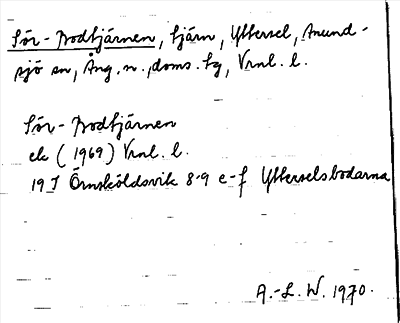 Sör-Bodtjärnen, tjärn, Yttersel, Anund-
sjö sn, Ång. n., doms. tg, Vrnl. l.
Sör-Bodtjärnen
ek (1969) Vrnl. l.
19 I Örnsköldsvik 8-9 e-f Ytterselsbodarna
A.-L. W. 1970.